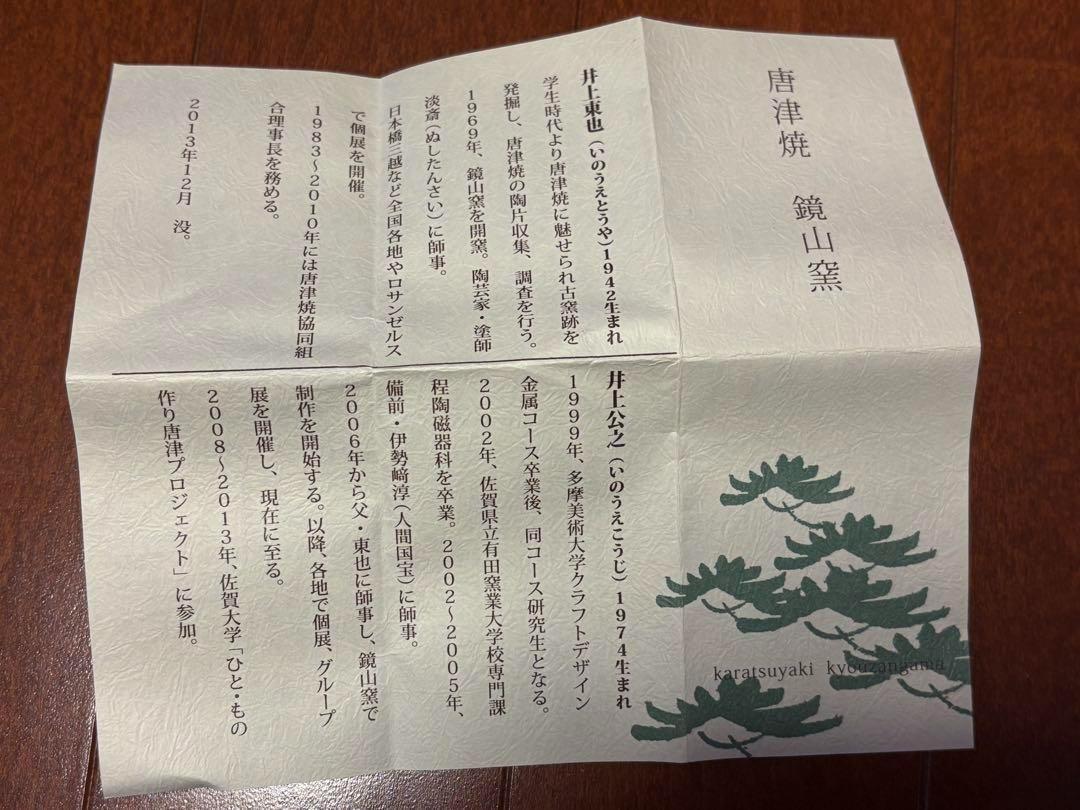 唐津焼　鏡山窯
karatsuyaki kyouzangama
井上東也（いのうえとうや）1942生まれ
学生時代より唐津焼に魅せられ古窯跡を
発掘し、唐津焼の陶片収集、調査を行う。
1969年、鏡山窯を開窯。陶芸家・塗師
淡斎（ぬしたんさい）に師事。
日本橋三越など全国各地やロサンゼルス
で個展を開催。
1983～2010年には唐津焼協同組
合理事長を務める。
2013年12月　没。
井上公之（いのうえこうじ）1974生まれ
1999年、多摩美術大学クラフトデザイン
金属コース卒業後、同コース研究生となる。
2002年、佐賀県立有田窯業大学校専門課
程陶磁器科を卒業。2002～2005年、
備前・伊勢﨑淳（人間国宝）に師事。
2006年から父・東也に師事し、鏡山窯で
制作を開始する。以降、各地で個展、グループ
展を開催し、現在に至る。
2008～2013年、佐賀大学「ひと・もの
作り唐津プロジェクト」に参加。